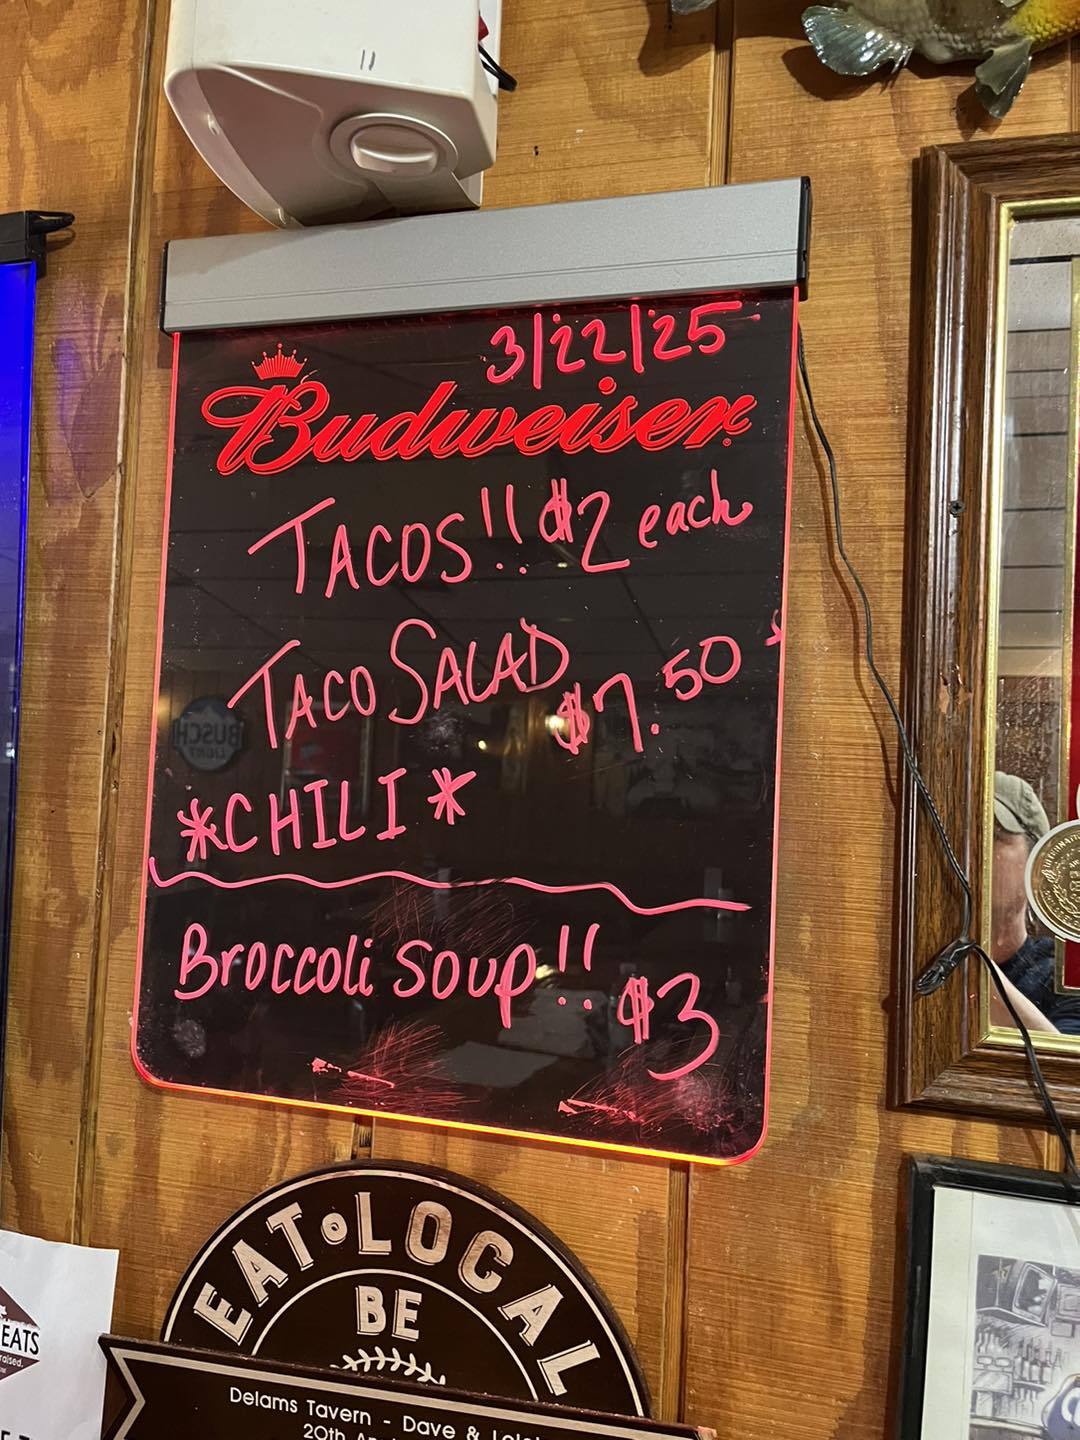 3/22/25
Budweiser
TACOS!! $2 each
TACO SALAD
$7.50
*CHILI*
Broccoli soup!! $3
EAT LOCAL
BE
Delams Tavern - Dave &
20th
EATS
raised.